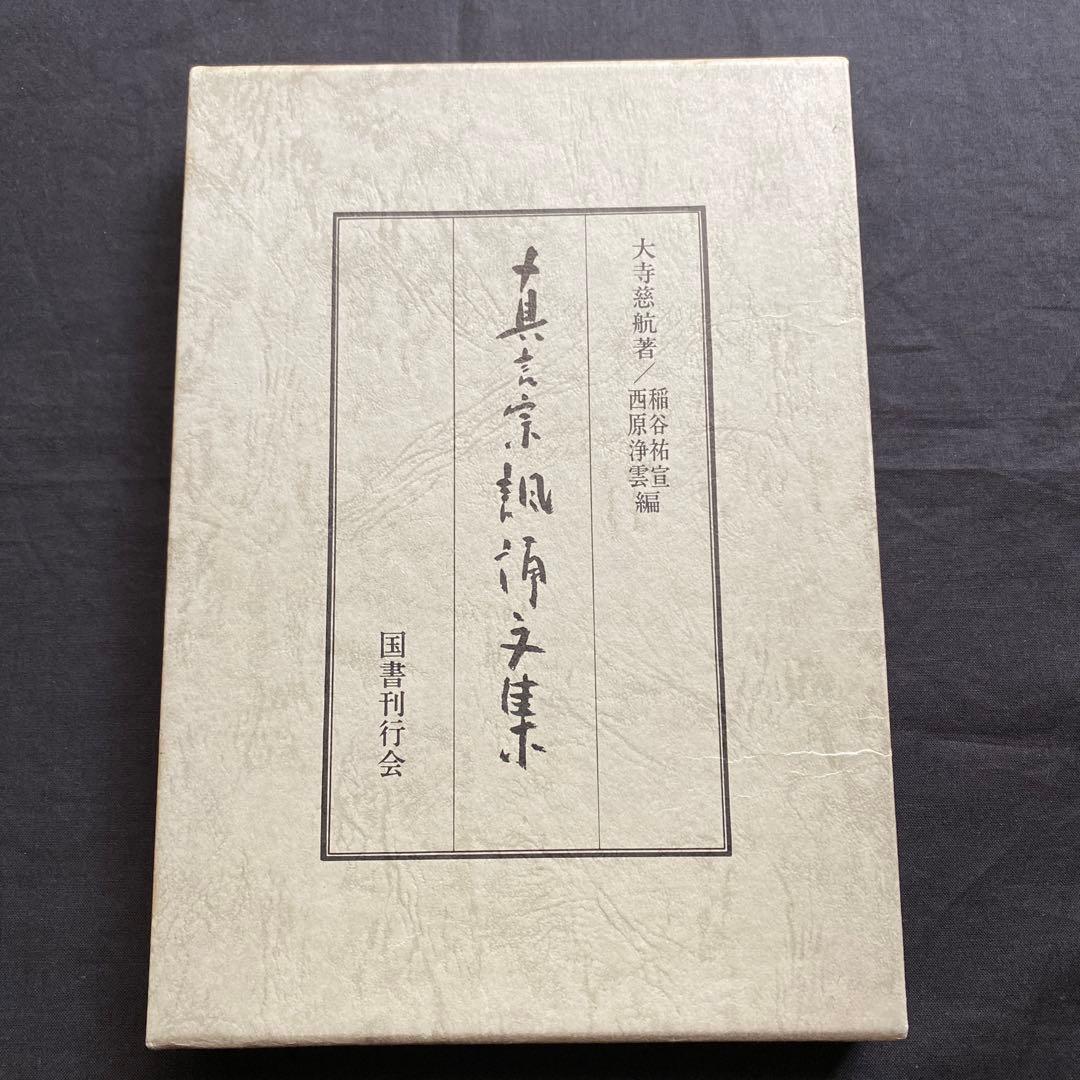 大寺慈航著/稲谷祐宣
西原浄雲編
真言宗諷誦文集
国書刊行会